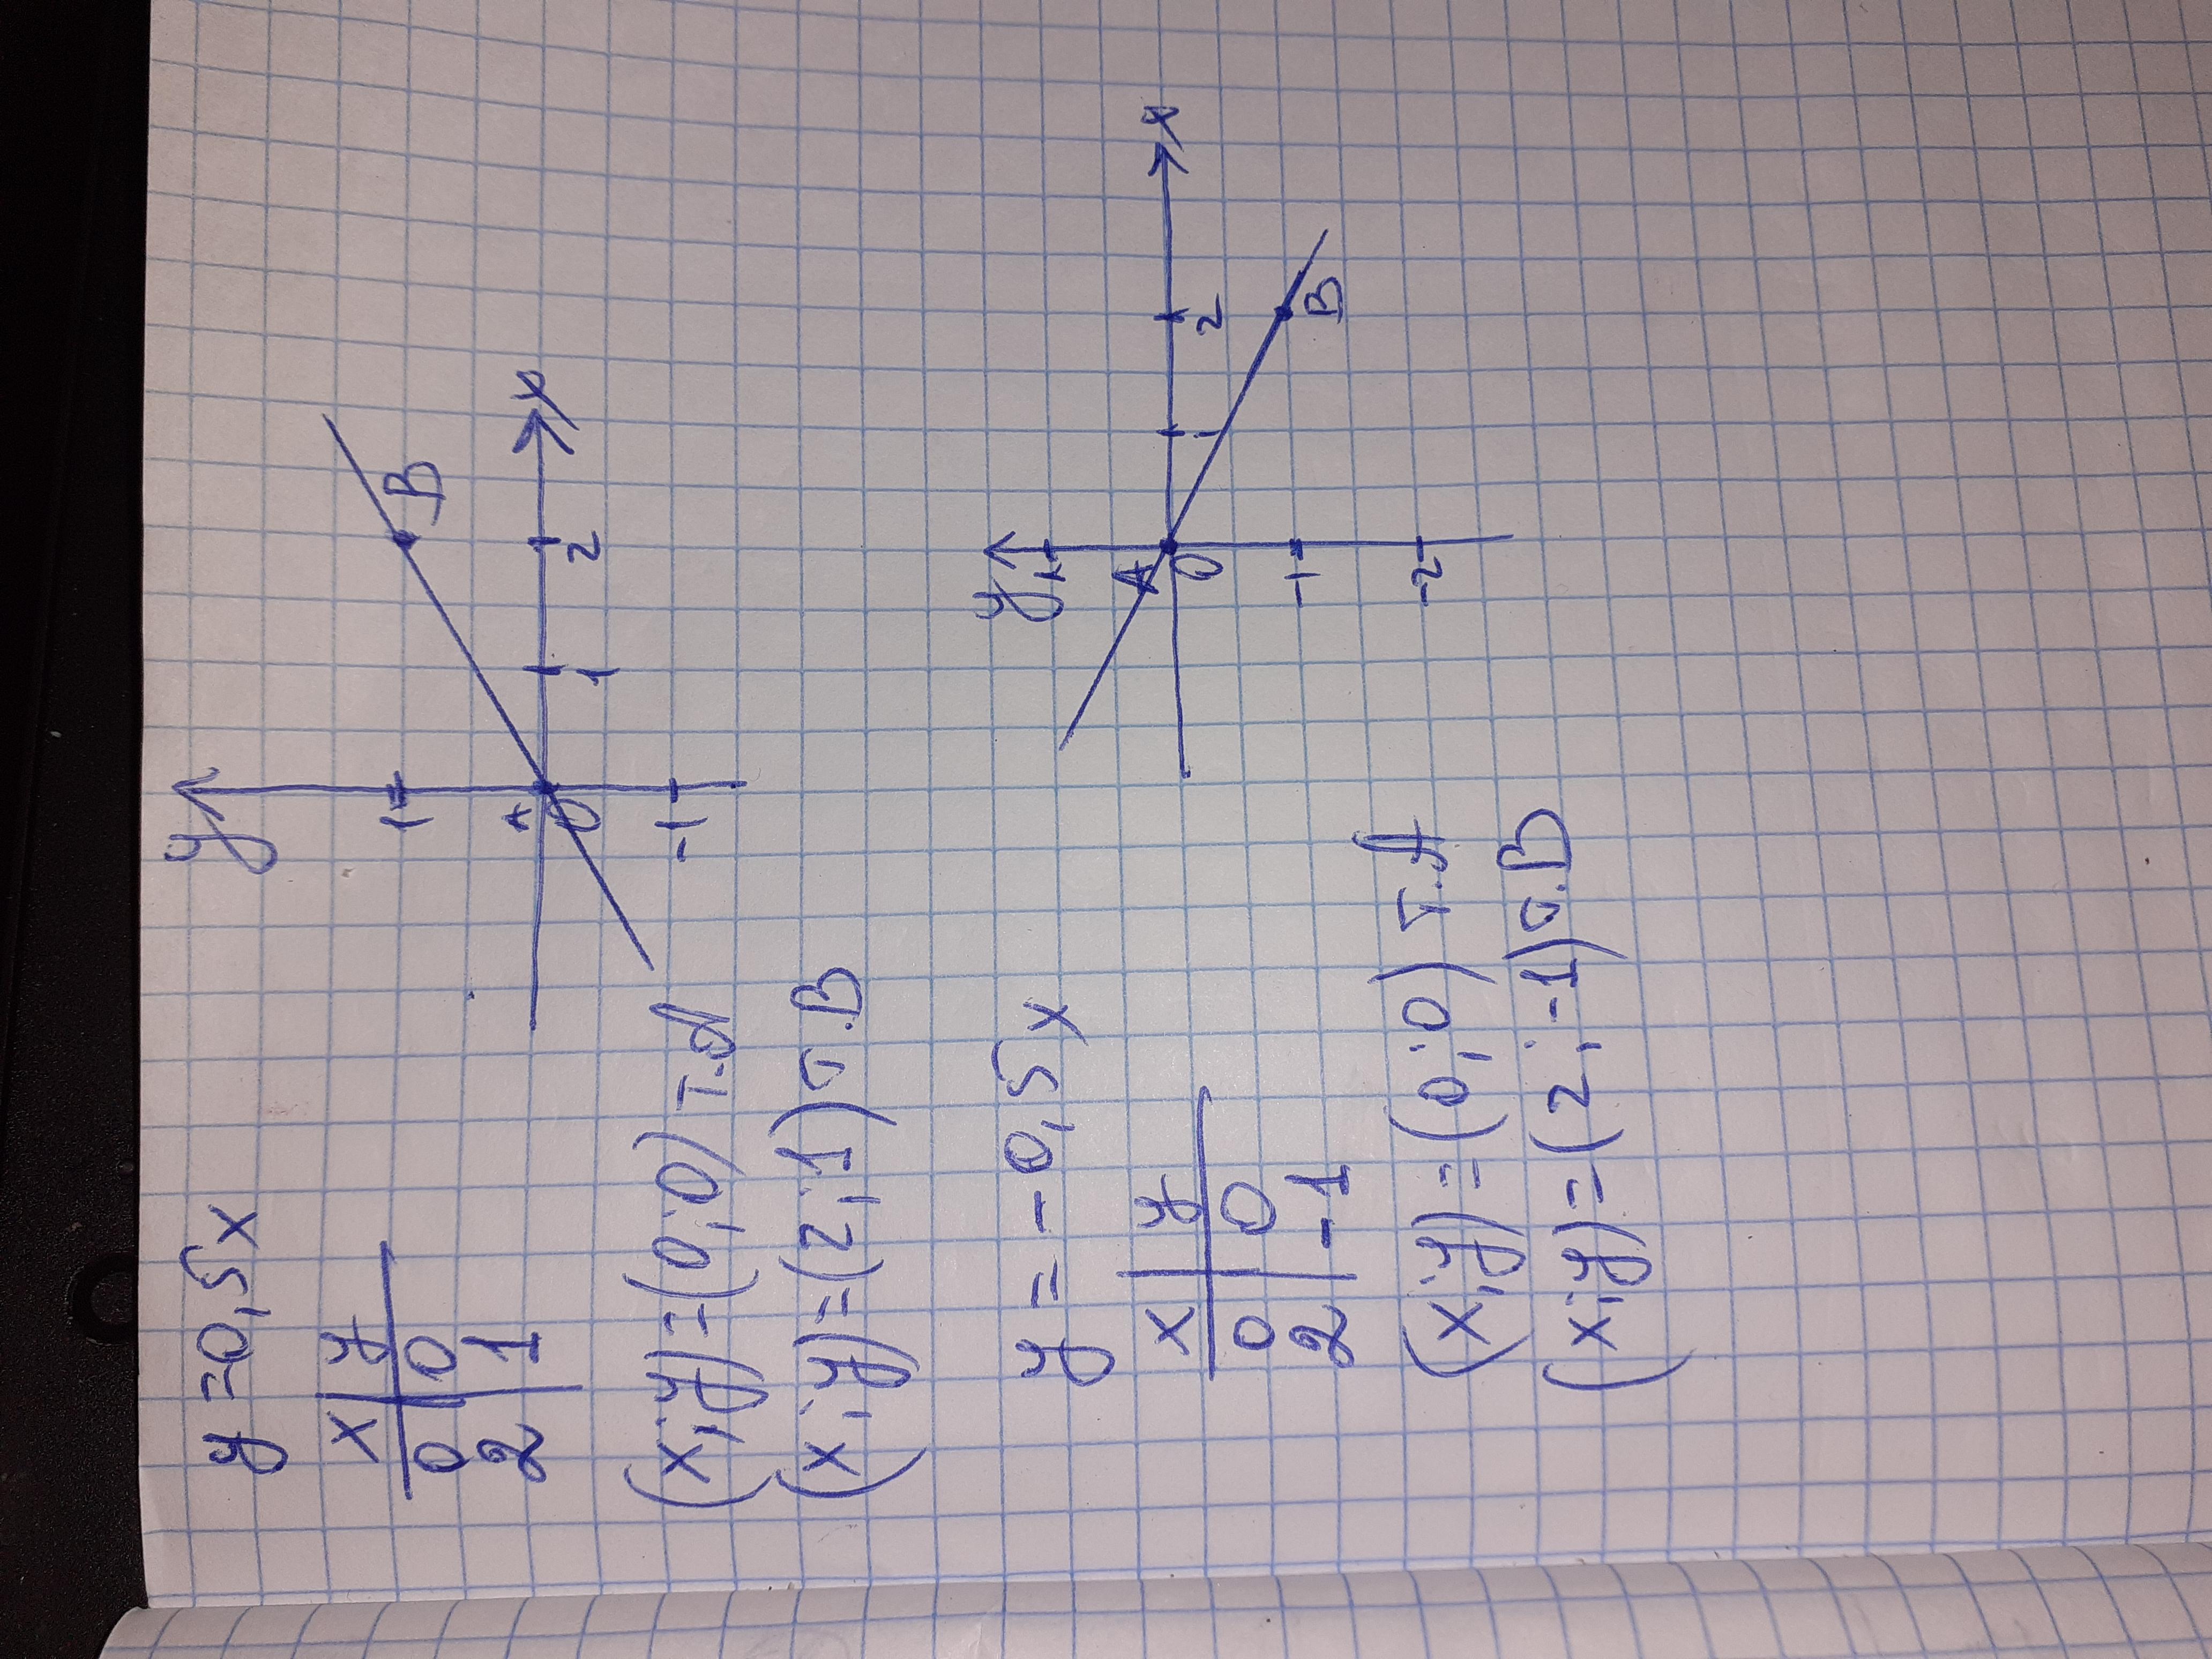 y = 0,5x
x | y
0 | 0
2 | 1
(x;y)=(0;0) т.A
(x;y)=(2;1) т.B
y
1
A
0
-1
1
2
B
x
y = -0,5x
x | y
0 | 0
2 | -1
(x;y)=(0;0) т.A
(x;y)=(2;-1) т.B
y
1
A
0
-1
-2
1
2
B
x